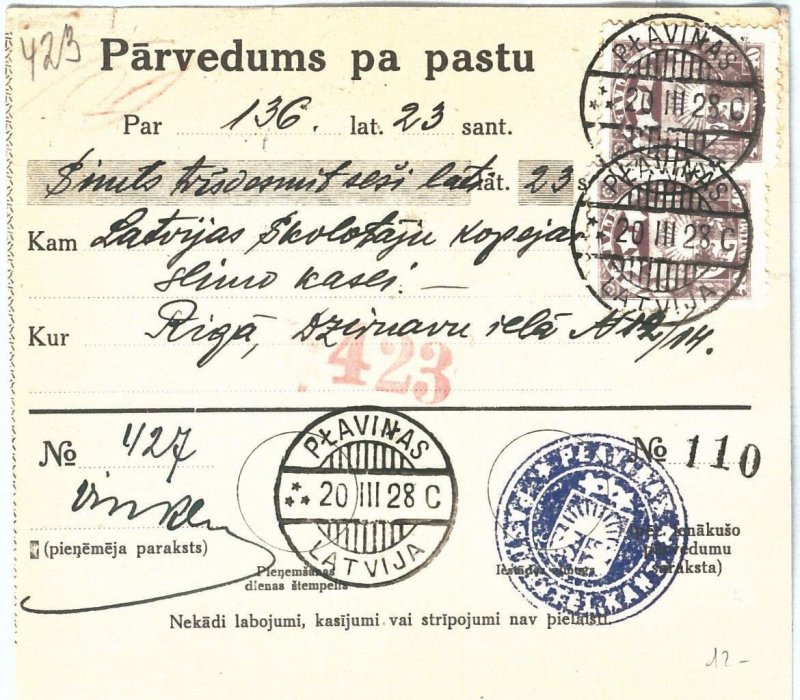 423
Pārvedums pa pastu
Par 136. lat. 23 sant.
Simts trīsdesmit seši lats lat. 23 s
Kam Latvijas Skolotāju kopejai
slimo kasei. —
Kur Rīgā, Dzirnavu ielā № 12/14.
423
PĻAVIŅAS
20 III 28 C
PĻAVIŅAS
20 III 28 C
LATVIJA
№ 427
PĻAVIŅAS
20 III 28 C
LATVIJA
№ 110
(pieņēmēja paraksts)
Pieņemšanas
dienas štempelis
ienākušo
pārvedumu
(saraksta)
Nekādi labojumi, kasījumi vai strīpojumi nav pielaisti.
12-